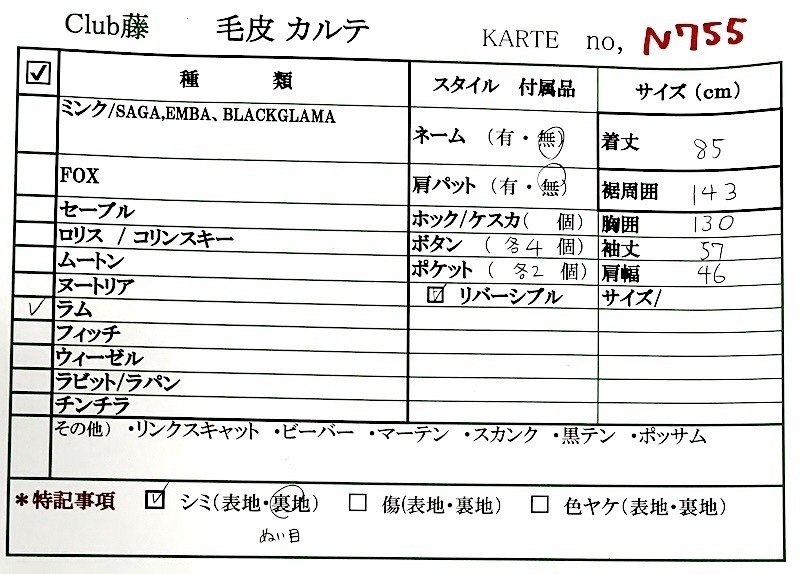 Club藤 毛皮 カルテ KARTE no, N755
☑ 種 類 スタイル 付属品 サイズ (cm)
ミンク/SAGA,EMBA、BLACKGLAMA ネーム (有・無) 着丈 85
FOX 肩パット (有・無) 裾周囲 143
セーブル ホック/ケスカ( 個) 胸囲 130
ロリス / コリンスキー ボタン ( 各4 個) 袖丈 57
ムートン ポケット ( 各2 個) 肩幅 46
ヌートリア ☑ リバーシブル サイズ/
✓ ラム
フィッチ
ウィーゼル
ラビット/ラパン
チンチラ
その他) ・リンクスキャット ・ビーバー ・マーテン ・スカンク ・黒テン ・ポッサム
*特記事項 ☑ シミ(表地・裏地) □ 傷(表地・裏地) □ 色ヤケ(表地・裏地)
ぬい目